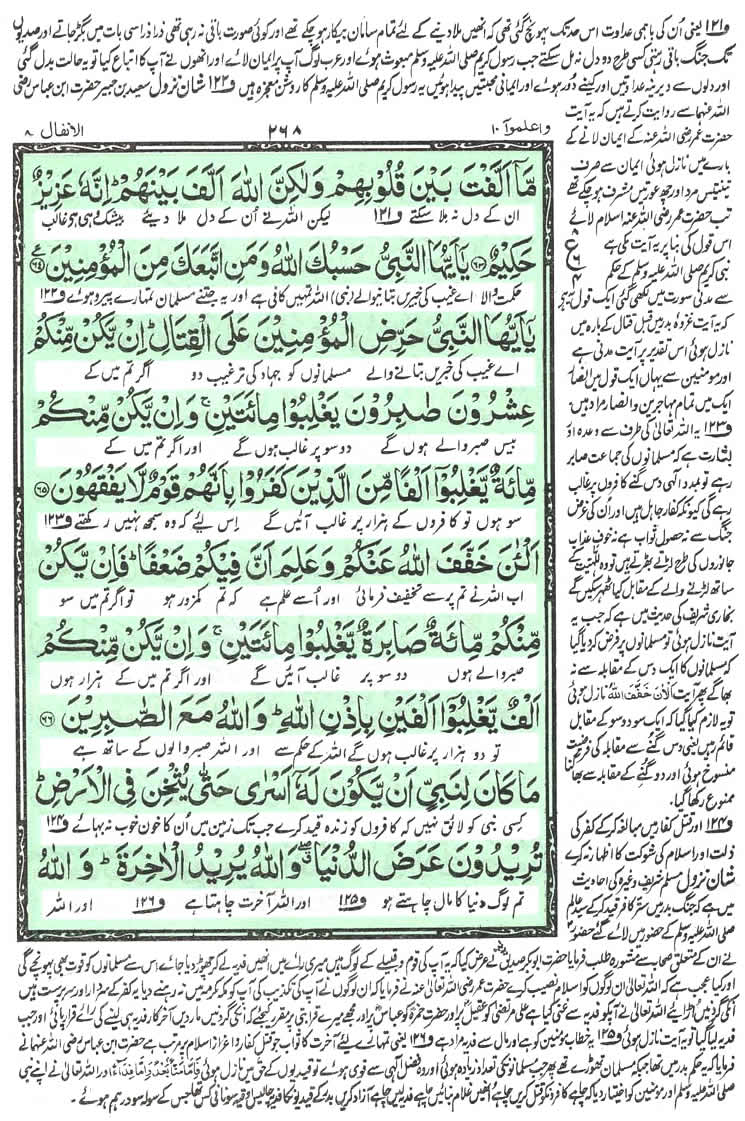 و۱۲۱ یعنی اُن کی باہمی عداوت اس حد تک پہونچ گئی تھی کہ انھیں ملا دینے کے لئے تمام سامان بیکار ہو چکے تھے اور کوئی صورت باقی نہ رہی تھی ذرا ذرا سی بات میں بگڑ جاتے اور صدیوں
تک جنگ باقی رہتی کسی طرح دو دل نہ مل سکتے جب رسول کریم صلی اللہ علیہ وسلم مبعوث ہوئے اور عرب لوگ آپ پر ایمان لائے اور انھوں نے آپ کا اتباع کیا تو یہ حالت بدل گئی
اور دلوں سے دیرینہ عداوتیں اور کینے دور ہوئے اور ایمانی محبتیں پیدا ہوئیں یہ رسول کریم صلی اللہ علیہ وسلم کا روشن معجزہ ہے و۱۲۲ شان نزول سعید بن جبیر حضرت ابن عباس رضی
اللہ عنہما سے روایت کرتے ہیں کہ یہ آیت
حضرت عمر رضی اللہ عنہ کے ایمان لانے کے
بارے میں نازل ہوئی ایمان سے صرف
تینتیس مرد اور چھ عورتیں مشرف ہو چکے تھے
تب حضرت عمر رضی اللہ عنہ اسلام لائے
اس قول کی بنا پر یہ آیت مکی ہے
نبی کریم صلی اللہ علیہ وسلم کے حکم
سے مدنی سورت میں لکھی گئی ایک قول یہ ہے
کہ یہ آیت غزوہ بدر میں قبل قتال کے بارہ میں
نازل ہوئی اس تقدیر پر آیت مدنی ہے
اور مومنین سے یہاں ایک قول میں انصار
ایک میں تمام مہاجرین و انصار مراد ہیں
و۱۲۳ یہ اللہ تعالیٰ کی طرف سے وعدہ اور
بشارت ہے کہ مسلمانوں کی جماعت صابر
رہے تو بمدد الٰہی دس گنے کافروں پر غالب
رہے گی کیونکہ کفار جاہل ہیں اور اُن کی غرض
جنگ سے نہ حصول ثواب ہے نہ خوف عذاب
جانوروں کی طرح لڑتے بھڑتے ہیں تو وہ للہیت کے
ساتھ لڑنے والے کے مقابل کیا ٹھہر سکیں گے
بخاری شریف کی حدیث میں ہے کہ جب یہ
آیت نازل ہوئی تو مسلمانوں پر فرض کر دیا گیا
کہ مسلمانوں کا ایک دس کے مقابلہ سے نہ
بھاگے پھر آیت اَلْاٰنَ خَفَّفَ اللّٰهُ نازل ہوئی
تو یہ لازم کیا گیا کہ ایک سو دو سو کے مقابل
قائم رہیں یعنی دس گنے سے مقابلہ کی فرضیت
منسوخ ہوئی اور دو گنے کے مقابلہ سے بھاگنا
ممنوع رکھا گیا۔
و۱۲۴ اور قتل کفار میں مبالغہ کرکے کفر کی
ذلت اور اسلام کی شوکت کا اظہار نہ کرے
شان نزول مسلم شریف وغیرہ کی احادیث
میں ہے کہ جنگ بدر میں ستر کافر قید کرکے سید عالم
صلی اللہ علیہ وسلم کے حضور میں لائے گئے حضور
واعلموا ۱۰
۲۶۸
الانفال ۸
مَّاۤ اَلَّفْتَ بَیْنَ قُلُوْبِهِمْ وَلٰكِنَّ اللّٰهَ اَلَّفَ بَیْنَهُمْؕ اِنَّهٗ عَزِیْزٌ
ان کے دل نہ ملا سکتے و۱۲۱ لیکن اللہ نے اُن کے دل ملا دیئے بیشک وہی ہے غالب
حَكِیْمٌ ۶۳ یٰۤاَیُّهَا النَّبِیُّ حَسْبُكَ اللّٰهُ وَمَنِ اتَّبَعَكَ مِنَ الْمُؤْمِنِیْنَ ۶۴
حکمت والا اے غیب کی خبریں بتانیوالے (نبی) اللہ تمہیں کافی ہے اور یہ جتنے مسلمان تمہارے پیرو ہوئے و۱۲۲
یٰۤاَیُّهَا النَّبِیُّ حَرِّضِ الْمُؤْمِنِیْنَ عَلَى الْقِتَالِؕ اِنْ یَّكُنْ مِّنْكُمْ
اے غیب کی خبریں بتانے والے مسلمانوں کو جہاد کی ترغیب دو اگر تم میں کے
عِشْرُوْنَ صٰبِرُوْنَ یَغْلِبُوْا مِائَتَیْنِۚ وَاِنْ یَّكُنْ مِّنْكُمْ
بیس صبر والے ہوں گے دو سو پر غالب ہوں گے اور اگر تم میں کے
مِّائَةٌ یَّغْلِبُوْۤا اَلْفًا مِّنَ الَّذِیْنَ كَفَرُوْا بِاَنَّهُمْ قَوْمٌ لَّا یَفْقَهُوْنَ ۶۵
سو ہوں تو کافروں کے ہزار پر غالب آئیں گے اس لیے کہ وہ سمجھ نہیں رکھتے و۱۲۳
اَلْـٰٔنَ خَفَّفَ اللّٰهُ عَنْكُمْ وَعَلِمَ اَنَّ فِیْكُمْ ضَعْفًاؕ فَاِنْ یَّكُنْ
اب اللہ نے تم پر سے تخفیف فرمائی اور اُسے علم ہے کہ تم کمزور ہو تو اگر تم میں سو
مِّنْكُمْ مِّائَةٌ صَابِرَةٌ یَّغْلِبُوْا مِائَتَیْنِۚ وَاِنْ یَّكُنْ مِّنْكُمْ
صبر والے ہوں دو سو پر غالب آئیں گے اور اگر تم میں کے ہزار ہوں
اَلْفٌ یَّغْلِبُوْۤا اَلْفَیْنِ بِاِذْنِ اللّٰهِؕ وَاللّٰهُ مَعَ الصّٰبِرِیْنَ ۶۶
تو دو ہزار پر غالب ہوں گے اللہ کے حکم سے اور اللہ صبر والوں کے ساتھ ہے
مَا كَانَ لِنَبِیٍّ اَنْ یَّكُوْنَ لَهٗۤ اَسْرٰى حَتّٰى یُثْخِنَ فِی الْاَرْضِؕ
کسی نبی کو لائق نہیں کہ کافروں کو زندہ قید کرے جب تک زمین میں اُن کا خون خوب نہ بہائے و۱۲۴
تُرِیْدُوْنَ عَرَضَ الدُّنْیَا ۖۗ وَاللّٰهُ یُرِیْدُ الْاٰخِرَةَؕ وَاللّٰهُ
تم لوگ دنیا کا مال چاہتے ہو و۱۲۵ اور اللہ آخرت چاہتا ہے و۱۲۶ اور اللہ
نے ان کے متعلق صحابہ سے مشورہ طلب فرمایا حضرت ابوبکر صدیق نے عرض کیا کہ یہ آپ کی قوم و قبیلے کے لوگ ہیں میری رائے میں انھیں فدیہ لے کر چھوڑ دیا جائے اس سے مسلمانوں کو قوت بھی پہونچے گی
اور کیا عجب ہے کہ اللہ تعالیٰ ان لوگوں کو اسلام نصیب کرے حضرت عمر رضی اللہ تعالیٰ عنہ نے فرمایا کہ ان لوگوں نے آپ کی تکذیب کی آپ کو مکہ مکرمہ میں نہ رہنے دیا یہ کفر کے سردار اور سرپرست ہیں
انکی گردنیں اڑائیے اللہ تعالیٰ نے آپکو فدیہ سے غنی کیا ہے علی مرتضیٰ کو عقیل پر اور حضرت حمزہ کو عباس پر اور مجھے میرے قرابتی پر مقرر کیجئے کہ انکی گردنیں مار دیں آخر کار فدیہ ہی لینے کی رائے قرار پائی اور جب
فدیہ لیا گیا تو یہ آیت نازل ہوئی و۱۲۵ یہ خطاب مومنین کو ہے اور مال سے فدیہ مراد ہے و۱۲۶ یعنی تمہارے لئے آخرت کا ثواب جو قتل کفار و اعزاز اسلام پر مرتب ہے حضرت ابن عباس رضی اللہ عنہما نے
فرمایا کہ یہ حکم بدر میں تھا جبکہ مسلمان تھوڑے تھے پھر جب مسلمانوں کی تعداد زیادہ ہوئی اور وہ فضل الٰہی سے قوی ہوئے تو قیدیوں کے حق میں نازل ہوئی فَاِمَّا مَنًّا بَعْدُ وَاِمَّا فِدَآءً اور اللہ تعالیٰ نے اپنے نبی
صلی اللہ علیہ وسلم اور مومنین کو اختیار دیا کہ چاہے کافروں کو قتل کریں چاہے انھیں غلام بنائیں چاہے فدیہ لیں چاہے آزاد کریں بدر کے قیدیوں کا فدیہ چالیس اوقیہ سونا فی کس تھا جس کے سولہ سو درہم ہوئے۔